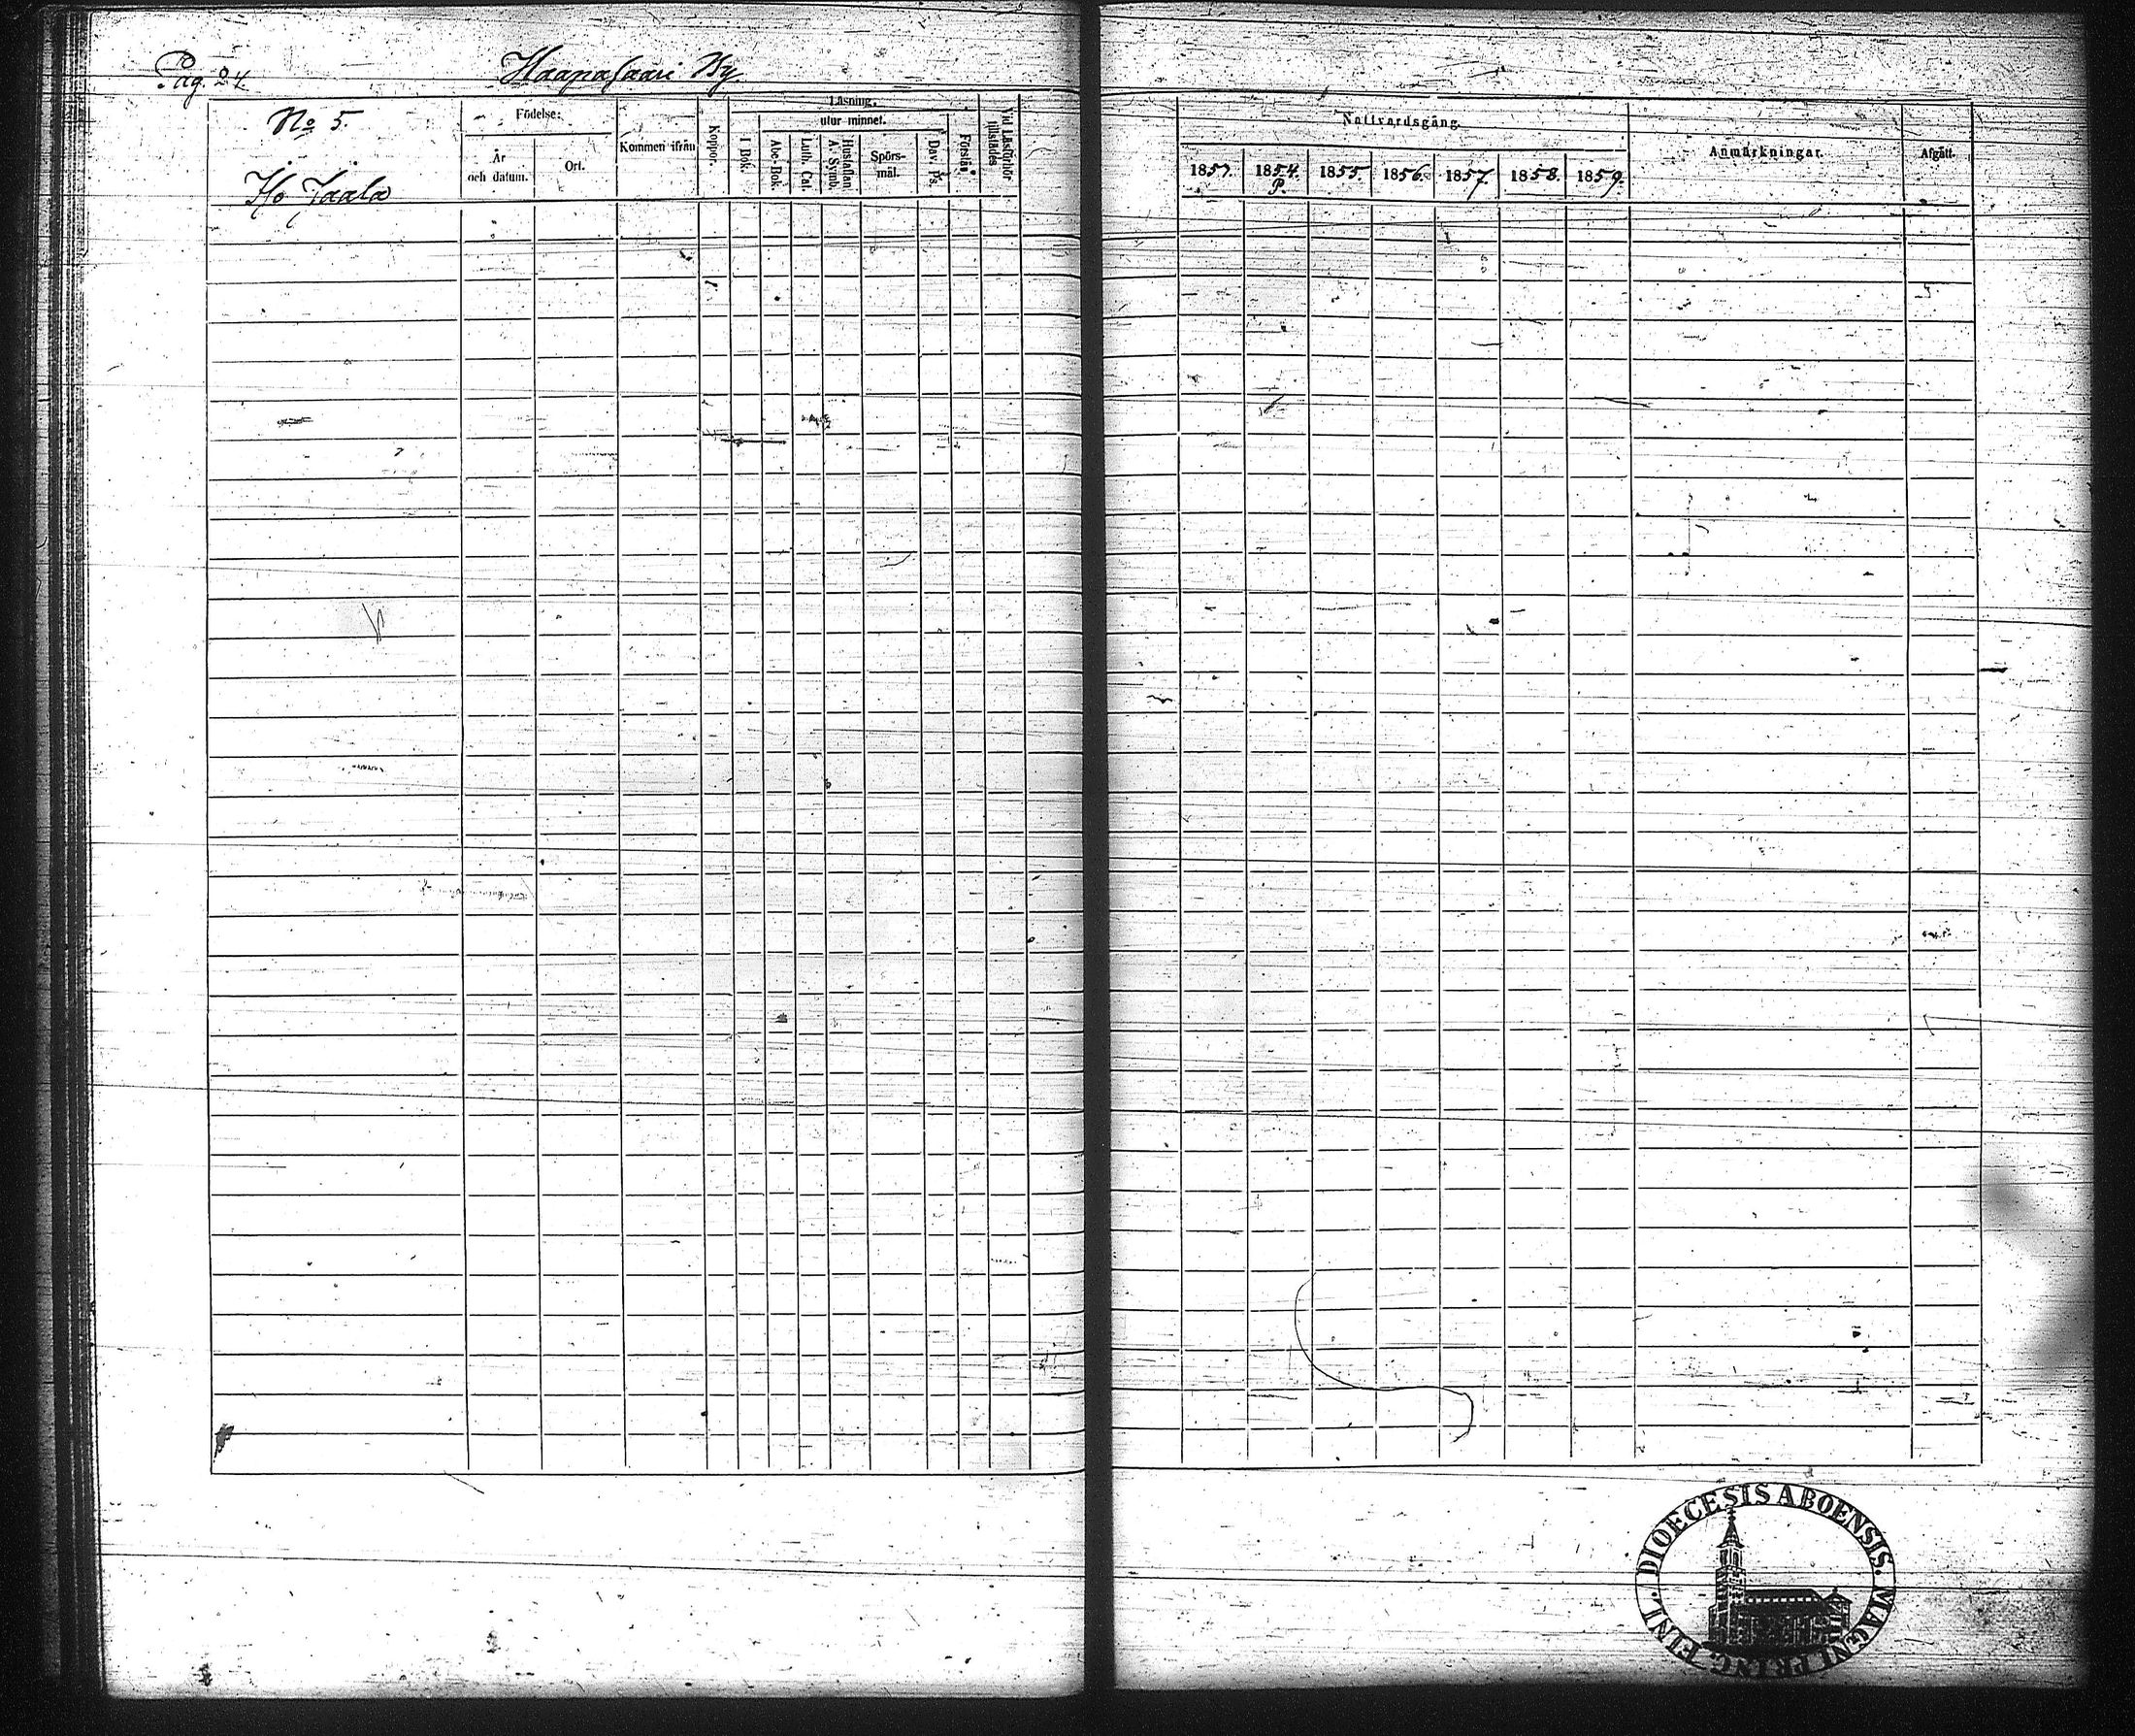 Pag. 24.
Haapasaari By
No 5.
Iso Jaala
Födelse:
År
och datum.
Ort.
Kommen ifrån
Koppor.
Läsning.
utur minnet.
I Bok.
Abc-Bok.
Luth. Cat.
Hustaflan
A. Symb.
Spörs-
mål.
Dav. Ps.
Förstå
Vid Läsförhör
tillstädes
Nattvardsgång.
1853.
1854.
P.
1855.
1856.
1857.
1858.
1859.
Anmärkningar.
Afgått.
DIOECESIS ABOENSIS. MAGNI PRINC. FINL.